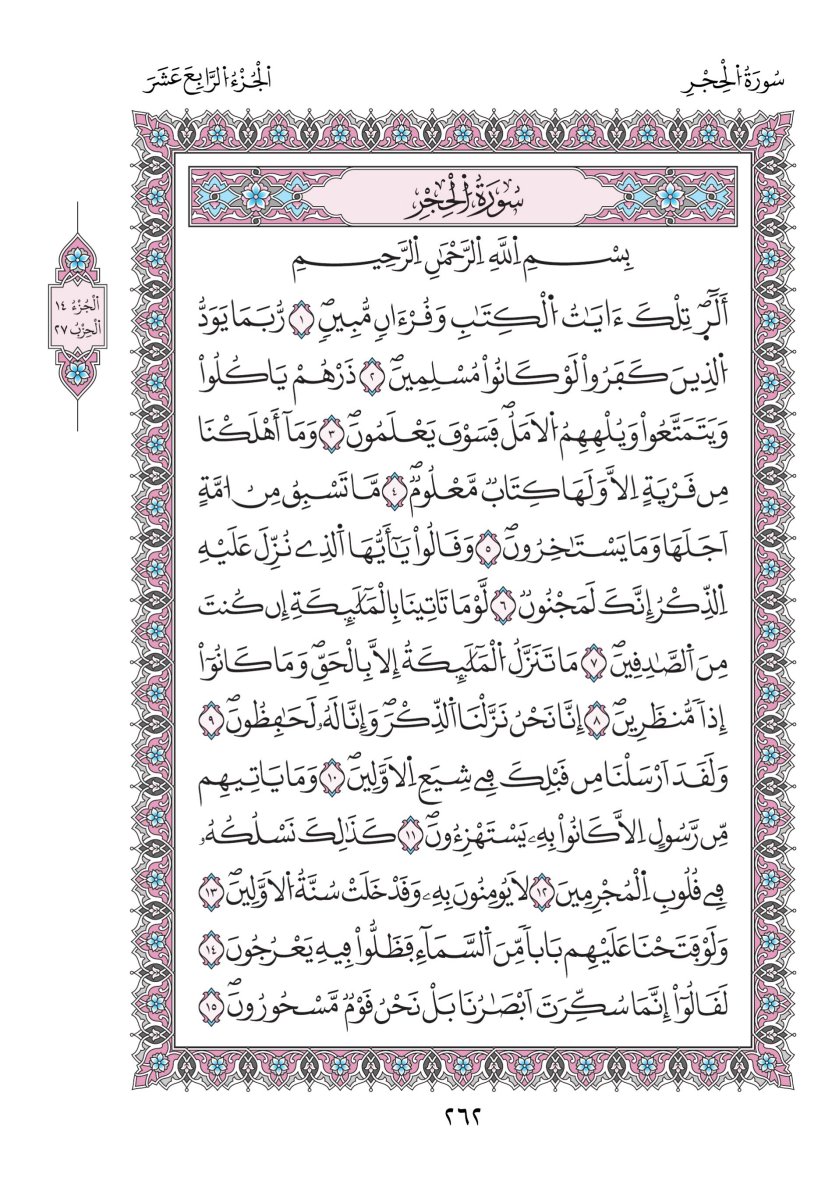 سُورَةُ اُ۬لْحِجْرِ
اَ۬لْجُزْءُ اُ۬لرَّابِعَ عَشَرَ
سُورَةُ اُ۬لْحِجْرِ
بِسْمِ اِ۬للَّهِ اِ۬لرَّحْمَٰنِ اِ۬لرَّحِيمِ
أَلَٓرۖ تِلْكَ ءَايَٰتُ اُ۬لْكِتَٰبِ وَقُرْءَانٖ مُّبِينٖۖ ١ رُّبَمَا يَوَدُّ
اُ۬لذِينَ كَفَرُواْ لَوْ كَانُواْ مُسْلِمِينَۖ ٢ ذَرْهُمْ يَاكُلُواْ
وَيَتَمَتَّعُواْ وَيُلْهِهِمُ اُ۬لَامَلُۖ فَسَوْفَ يَعْلَمُونَۖ ٣ وَمَآ أَهْلَكْنَا
مِن قَرْيَةٍ اِلَّا وَلَهَا كِتَابٞ مَّعْلُومٞۖ ٤ مَّا تَسْبِقُ مِنُ ا۟مَّةٍ
اَجَلَهَا وَمَا يَسْتَٰخِرُونَۖ ٥ وَقَالُواْ يَٰٓأَيُّهَا اَ۬لذِے نُزِّلَ عَلَيْهِ
اِ۬لذِّكْرُ إِنَّكَ لَمَجْنُونٞۖ ٦ لَّوْ مَا تَاتِينَا بِالْمَلَٰٓئِكَةِ إِن كُنتَ
مِنَ اَ۬لصَّٰدِقِينَۖ ٧ مَا تَنَزَّلُ اُ۬لْمَلَٰٓئِكَةُ إِلَّا بِالْحَقِّۖ وَمَا كَانُوٓاْ
إِذاٗ مُّنظَرِينَۖ ٨ إِنَّا نَحْنُ نَزَّلْنَا اَ۬لذِّكْرَۖ وَإِنَّا لَهُۥ لَحَٰفِظُونَۖ ٩
وَلَقَدَ اَرْسَلْنَا مِن قَبْلِكَ فِے شِيَعِ اِ۬لَاوَّلِينَۖ ١٠ وَمَا يَاتِيهِم
مِّن رَّسُولٍ اِلَّا كَانُواْ بِهِۦ يَسْتَهْزِءُونَۖ ١١ كَذَٰلِكَ نَسْلُكُهُۥ
فِے قُلُوبِ اِ۬لْمُجْرِمِينَ ١٢ لَا يُومِنُونَ بِهِۦ وَقَدْ خَلَتْ سُنَّةُ اُ۬لَاوَّلِينَۖ ١٣
وَلَوْ فَتَحْنَا عَلَيْهِم بَاباٗ مِّنَ اَ۬لسَّمَآءِ فَظَلُّواْ فِيهِ يَعْرُجُونَ ١٤
لَقَالُوٓاْ إِنَّمَا سُكِّرَتَ اَبْصَٰرُنَا بَلْ نَحْنُ قَوْمٞ مَّسْحُورُونَۖ ١٥
اَلْجُزْءُ ١٤
اَلْحِزْبُ ٢٧
٢٦٢